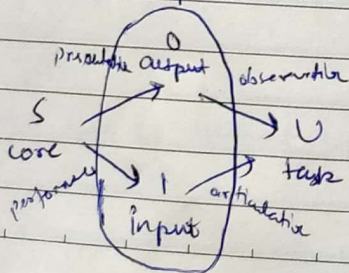 O
presentation output observation
S U
core task
performance I articulation
input